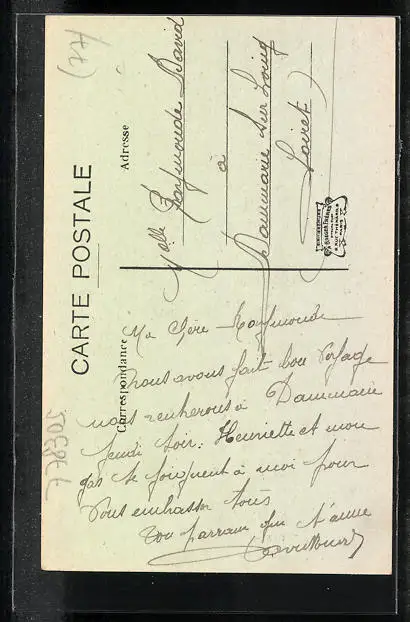 CARTE POSTALE
Correspondance
Adresse
Ma Chère Raymonde
nous avons fait bon voyage
nous rentrerons à Dammarie
jeudi soir. Henriette et mon
gas se joignent à moi pour
vous embrasser tous
ton parrain qui t'aime
Melle Raymonde David
à
Dammarie sur Loing
Loiret